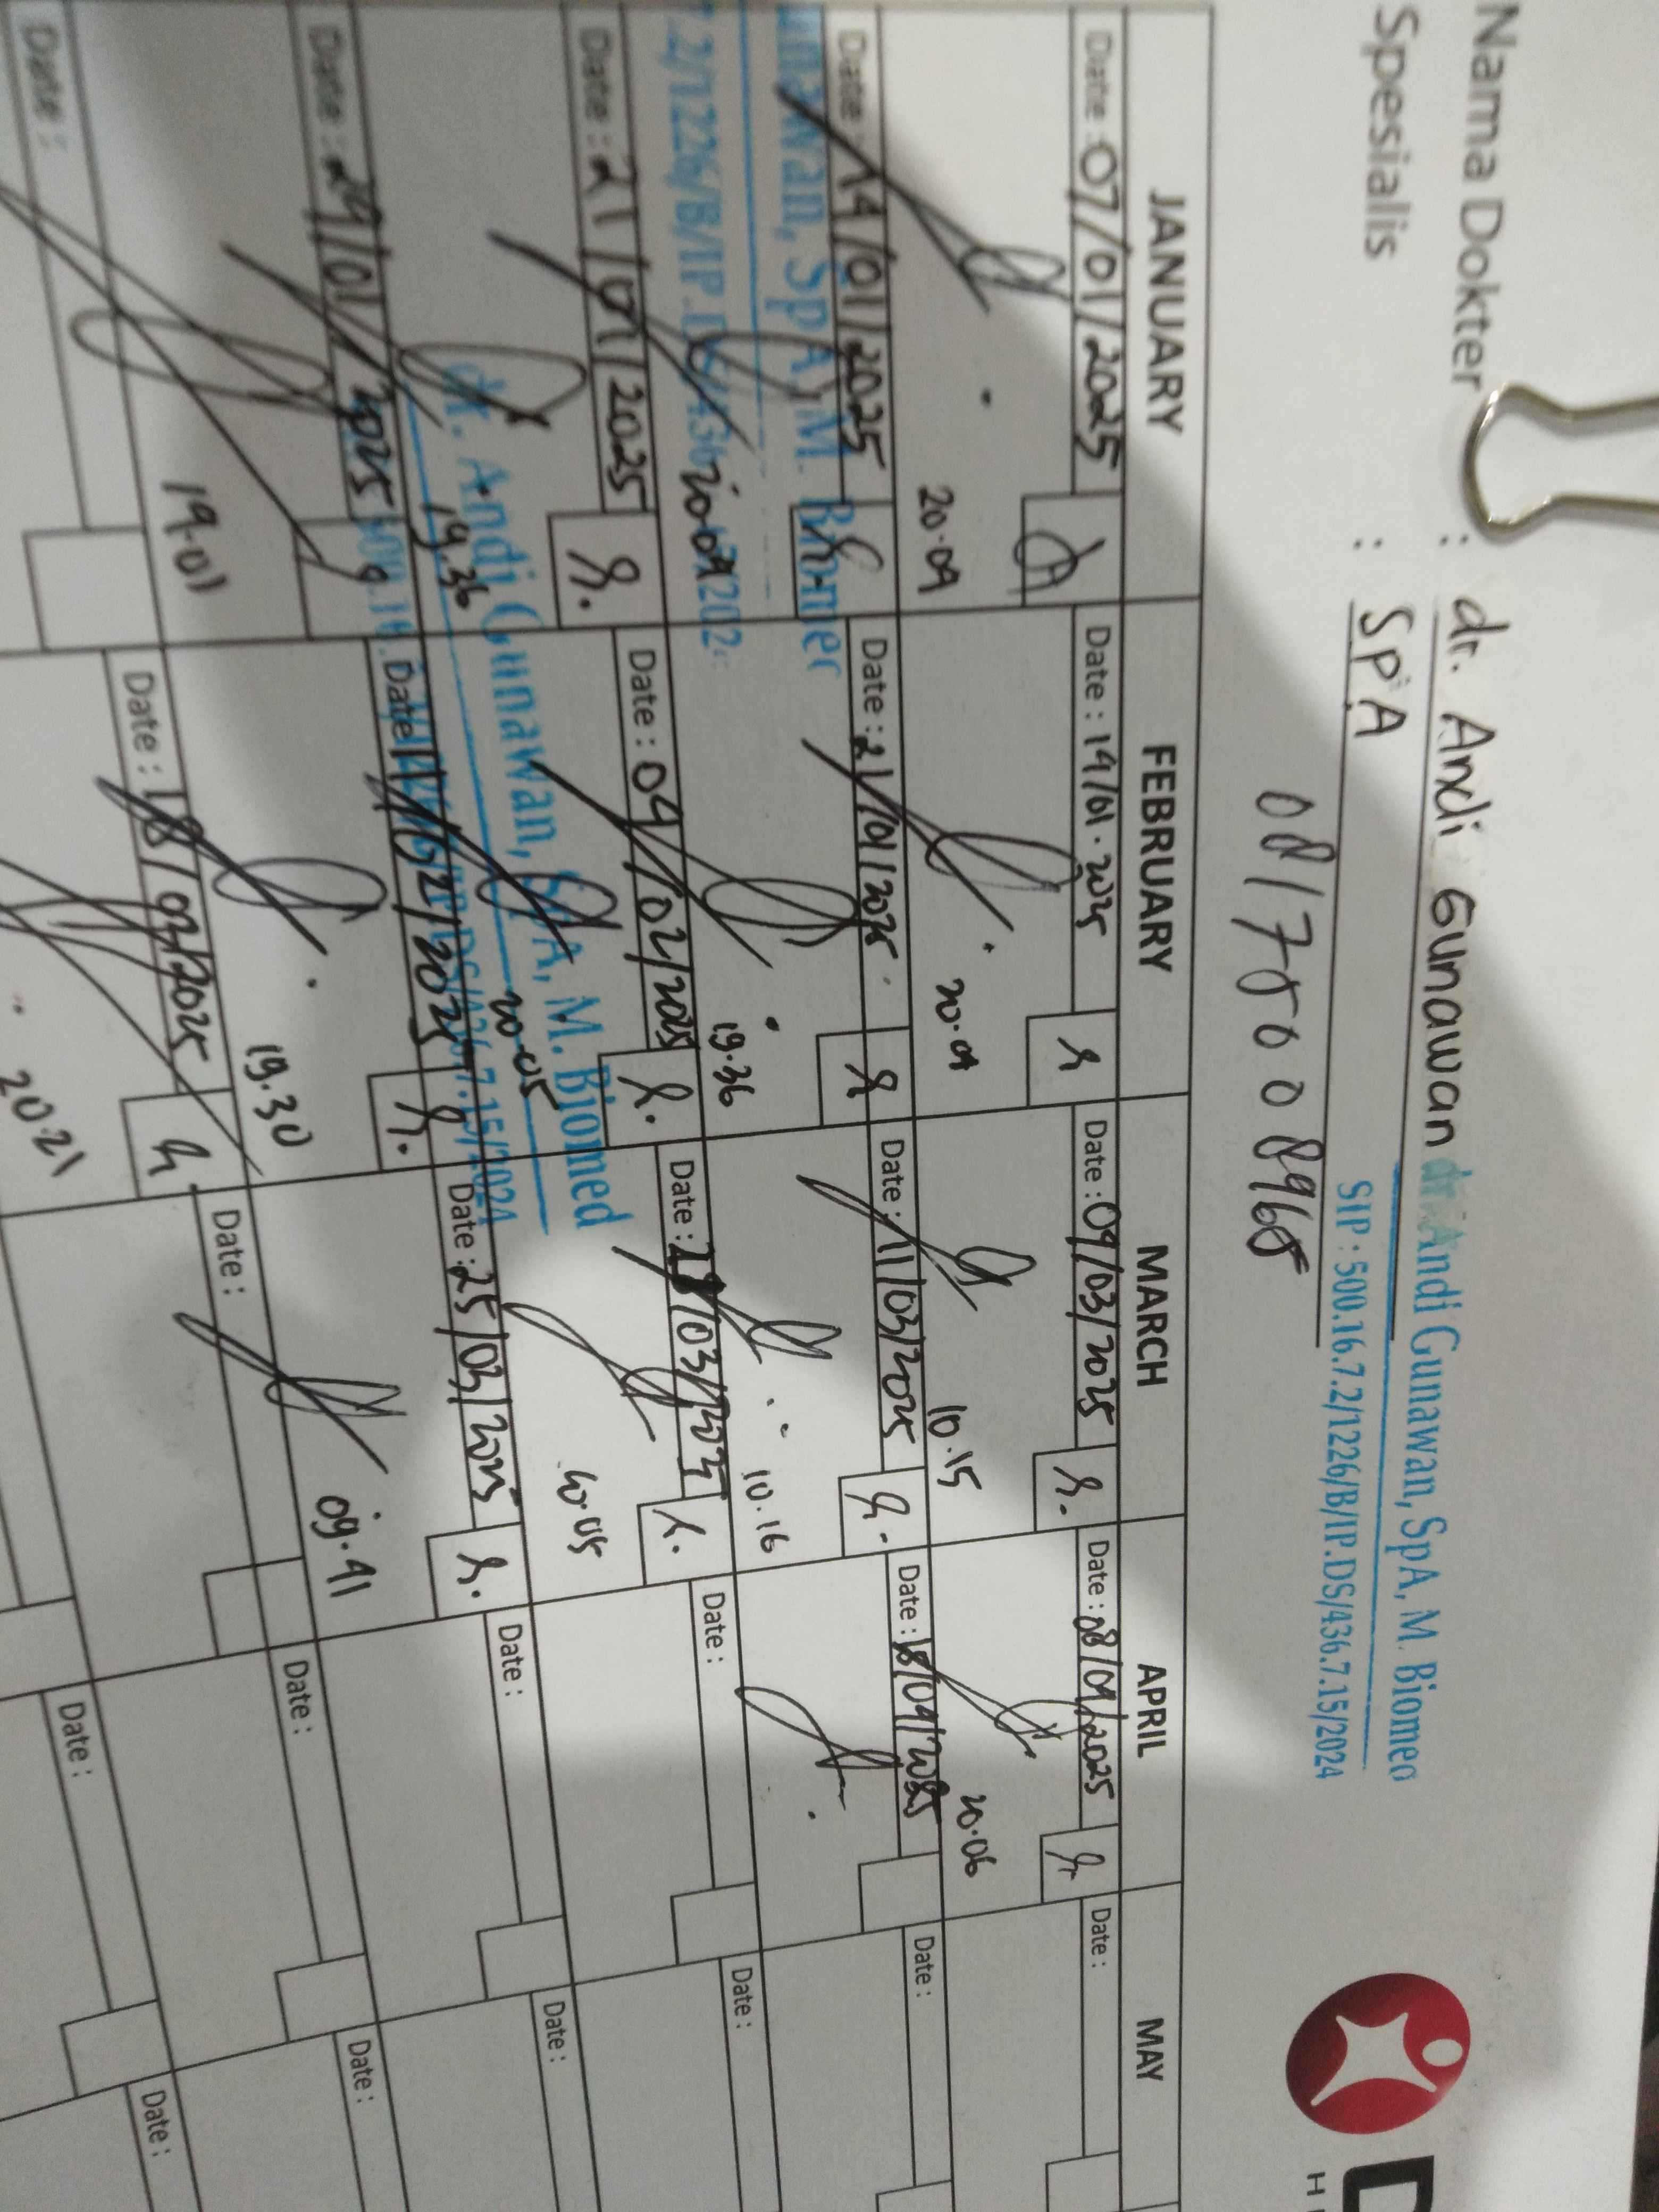 Nama Dokter : dr. Andi Gunawan dr. Andi Gunawan, SpA, M. Biomed
SIP : 500.16.7.2/1226/B/IP.DS/436.7.15/2024
Spesialis : SPA
JANUARY FEBRUARY MARCH APRIL MAY
Date : 07/01/2025 Date : 14/01.2025 Date : 09/03/2025 Date : 08/04/2025 Date :
20.09 20.09 10.15 20.06
Date : 14/01/2025 Date : 21/01/2025 Date : 11/03/2025 Date : 18/04/2025 Date :
SpA, M. Biomed
20.09 19.36 10.16
Date : 21/01/2025 Date : 04/02/2025 Date : /03/2025 Date : Date :
dr. Andi Gunawan, SpA, M. Biomed
19.36 20.05 20.05
Date : 29/01/2025 Date : 11/02/2025 Date : 25/03/2025 Date : Date :
19.01 19.30 09.41
Date : Date : 18/02/2025 Date : Date : Date :
20.21
Date : Date :